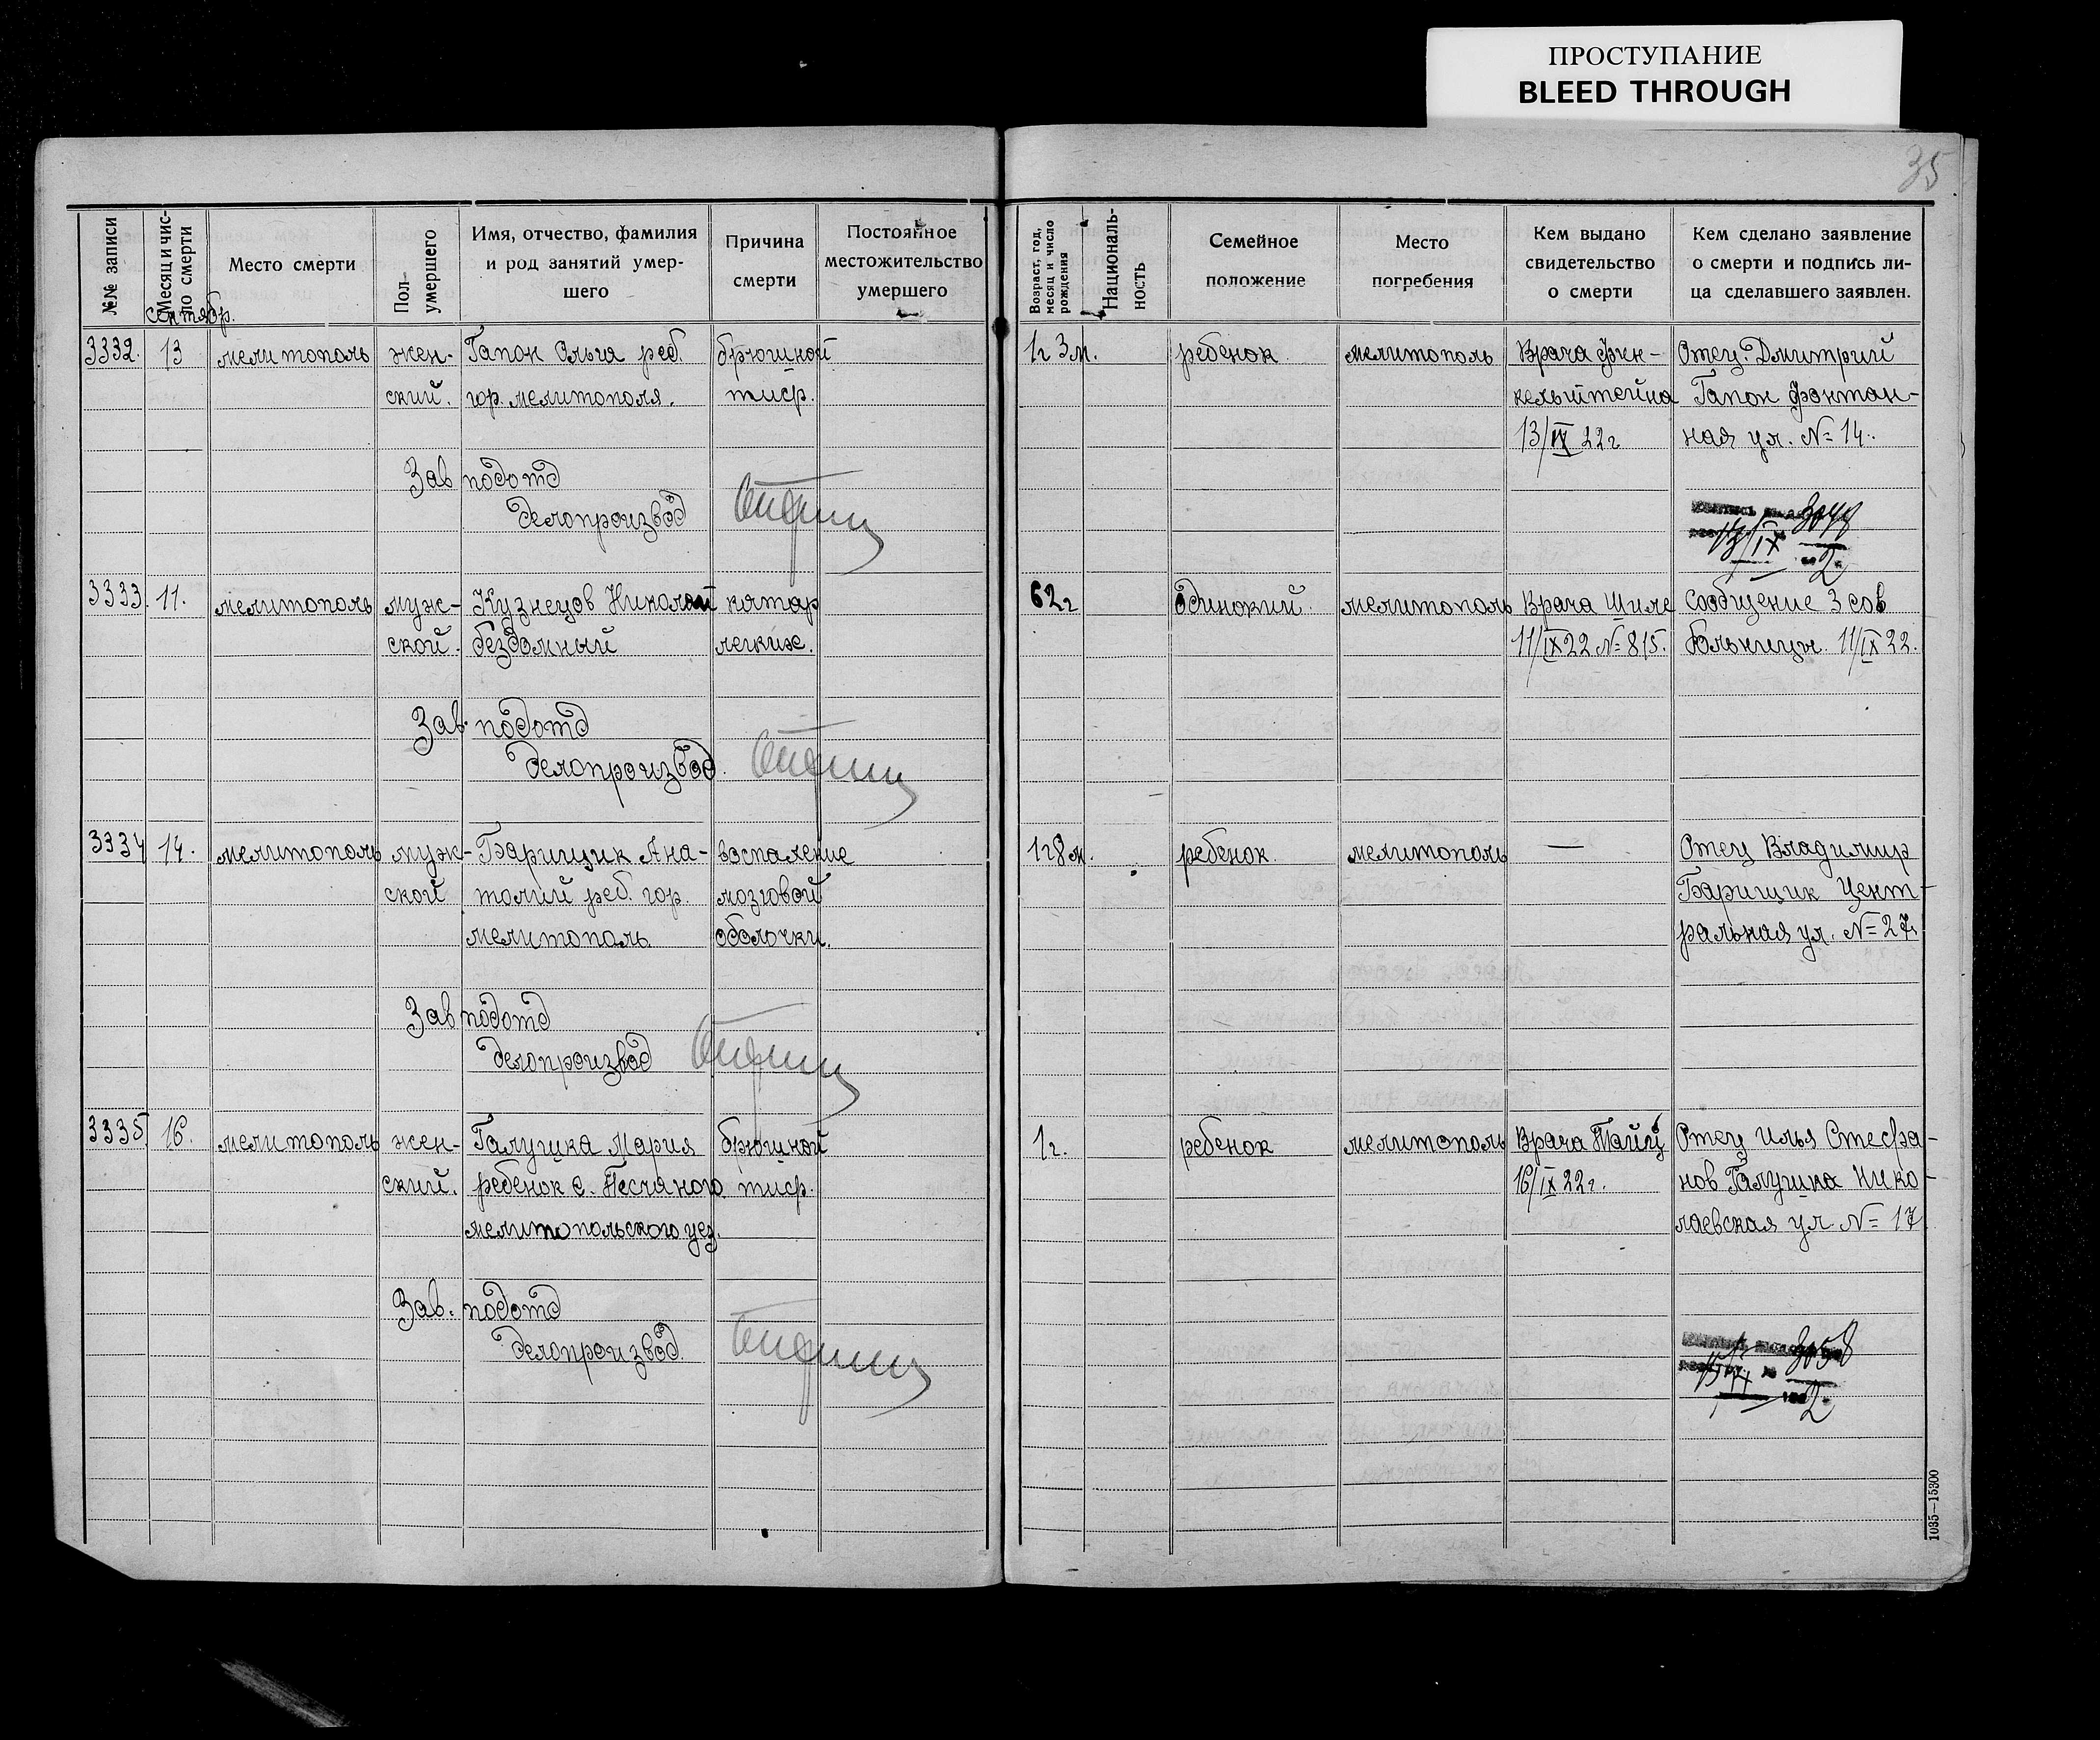 ПРОСТУПАНИЕ
BLEED THROUGH
35
№№ записи
Месяц и чис-
ло смерти
Место смерти
Пол
умершего
Имя, отчество, фамилия
и род занятий умер-
шего
Причина
смерти
Постоянное
местожительство
умершего
Возраст, год,
месяц и число
рождения
Националь-
ность
Семейное
положение
Место
погребения
Кем выдано
свидетельство
о смерти
Кем сделано заявление
о смерти и подпись ли-
ца сделавшего заявлен.
сентябр.
3332. 13 мелитополь жен- Гапон Ольга реб. брюшной 1г 3м. ребенок мелитополь Врача Фин- Отец. Дмитрий
ский. гор. мелитополя. тиф. кельштейна Гапон Фонтан-
13/IX 22г ная ул. № 14.
Зав подотд
делопроизвод
3048
13/IX 2
3333. 11. мелитополь муж- Кузнецов Николай катар 62г одинокий. мелитополь Врача Шиле Сообщение 3 сов
ской. бездомный легких. 11/IX 22 № 815. больницы. 11/IX 22.
Зав. подотд
делопроизвод.
3334 14. мелитополь муж- Барищик Ана- воспаление 1г 8м. ребенок. мелитополь — Отец Владимир
ской толий реб. гор. мозговой Барищик Цент-
мелитополь оболочки. ральная ул. № 27.
Зав подотд
делопроизвод
3335. 16. мелитополь жен- Галушка Мария брюшной 1г. ребенок мелитополь Врача Тайц Отец Илья Стефа-
ский. ребенок с. Песчаного тиф. 16/IX 22г. нов Галушка Нико-
мелитопольского уез. лаевская ул. № 17
Зав. подотд
делопроизвод.
3058
2
1035—15300